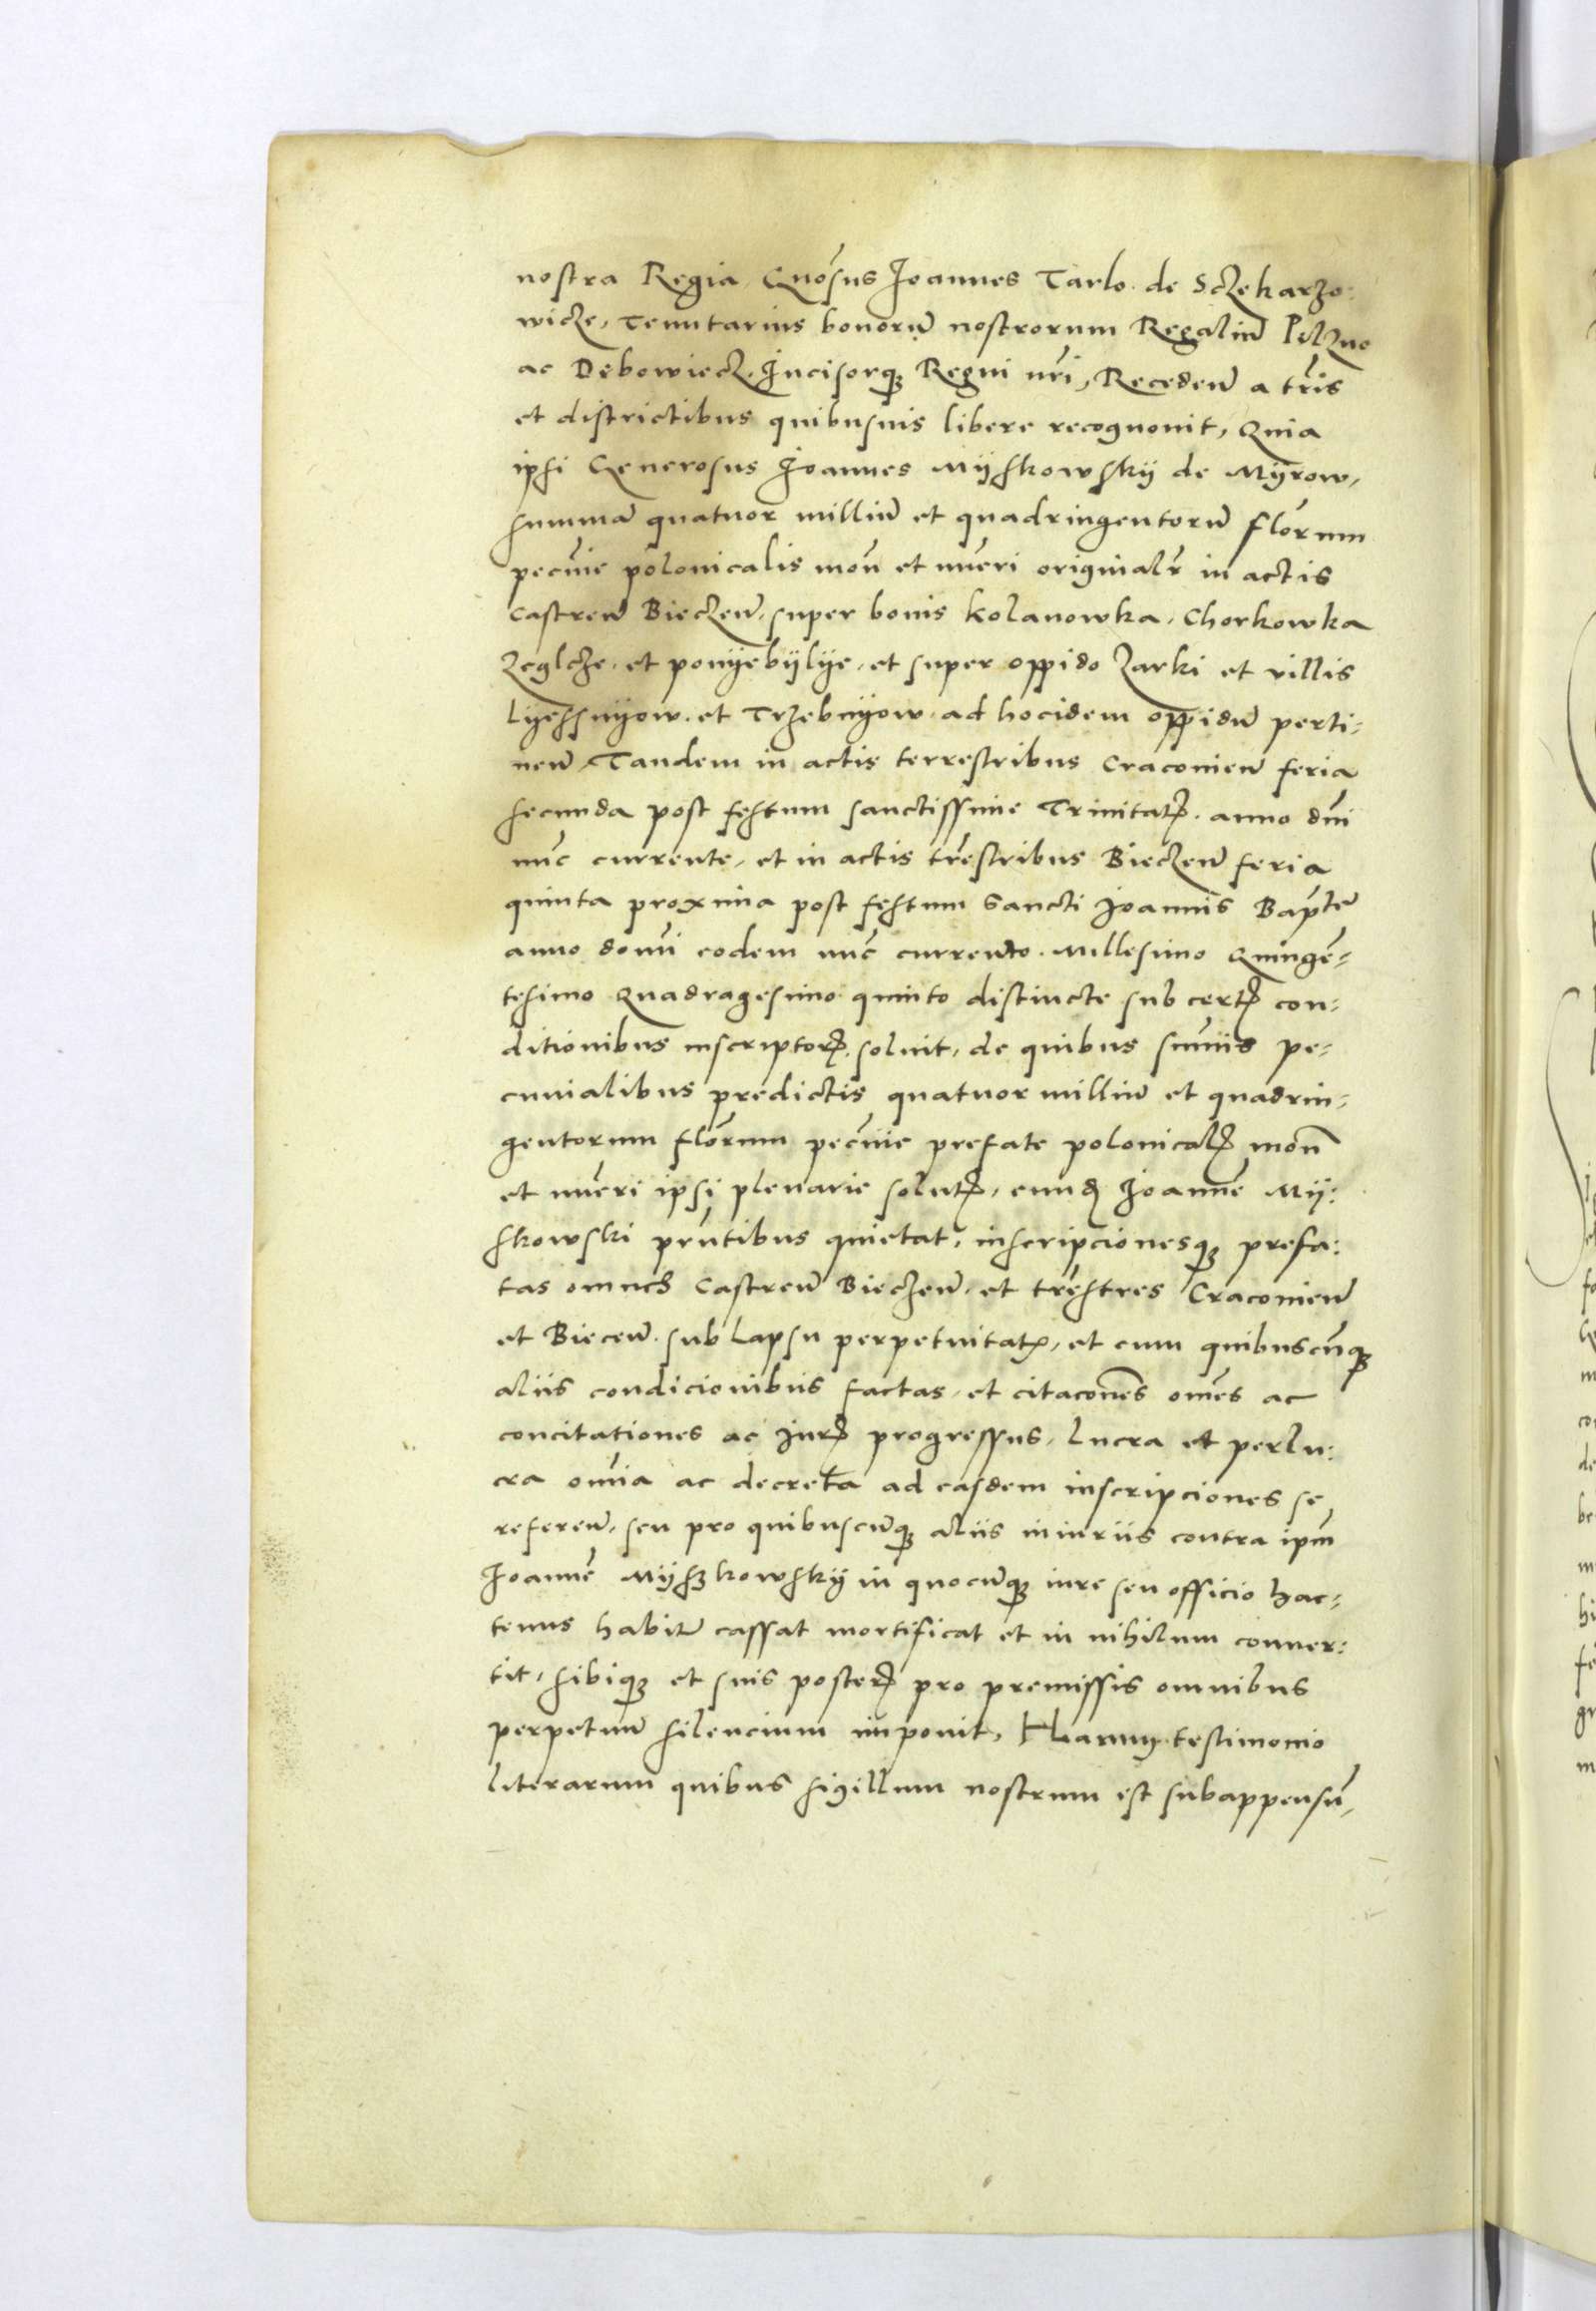 nostra Regia, Gnosus Joannes Tarlo de Sczekarzo:
wicze, Tenutarius bonorū nostrorum Regaliū Pilzno
ac Dębowiecz, Incisorq3 Regni nri, Recedeñ a tris
et districtibus quibusuis libere recognouit, Quia
ipsi Generosus Joannes Myskowsky de Myrow,
summā quatuor milliū et quadringentorū florum
pecūie polonicalis moñ et nueri originalr in actis
Castreñ Bieczeñ, super bonis Kolanowka, Chorkowka
Zeglcze, et ponyebylye, et super oppido Zarki et villis
Lyessnyow, et Trzebnyow, ad hocidem oppidū perti-
neñ, Tandem in actis terrestribus Cracouieñ feria
secunda post festum sanctissime Trinitatꝭ, anno dni
nūc currente, et in actis trrestribus Bieczeñ feria
quinta proxima post festum Sancti Joannis Baptē
anno domi eodem nūc currento, Millesimo Quingē-
tesimo Quadragesimo quinto distincte sub certꝭ con-
ditionibus inscriptorꝭ soluit, de quibus sūmis pe-
cunialibus predictis quatuor milliū et quadrin-
gentorum florum pecūie prefate polonicalꝭ moñ
et nueri ipsi plenarie solutꝭ, eundꝭ Joannē My:
skowski prntibus quietat, inscripcionesq3 prefa:
tas omnes Castreñ Bieczeñ, et trestres Cracouieñ
et Bieceñ, sub lapsu perpetuitatꝭ, et cum quibuscūq3
aliis condicionibus factas, et citacōnes omēs ac
concitationes ac Jurꝭ progressus, lucra et perlu:
cra omia ac decreta ad easdem inscripciones se
refereñ, seu pro quibuscūq3 aliis iniuriis contra ipm
Joannē Myszkowsky in quocūq3 iure seu officio hac-
tenus habitꝭ cassat mortificat et in nihilum conuer:
tit, sibiq3 et suis posterꝭ pro premissis omnibus
perpetuū silencium imponit, Harum testimonio
literarum quibus sigillum nostrum est subappensū,